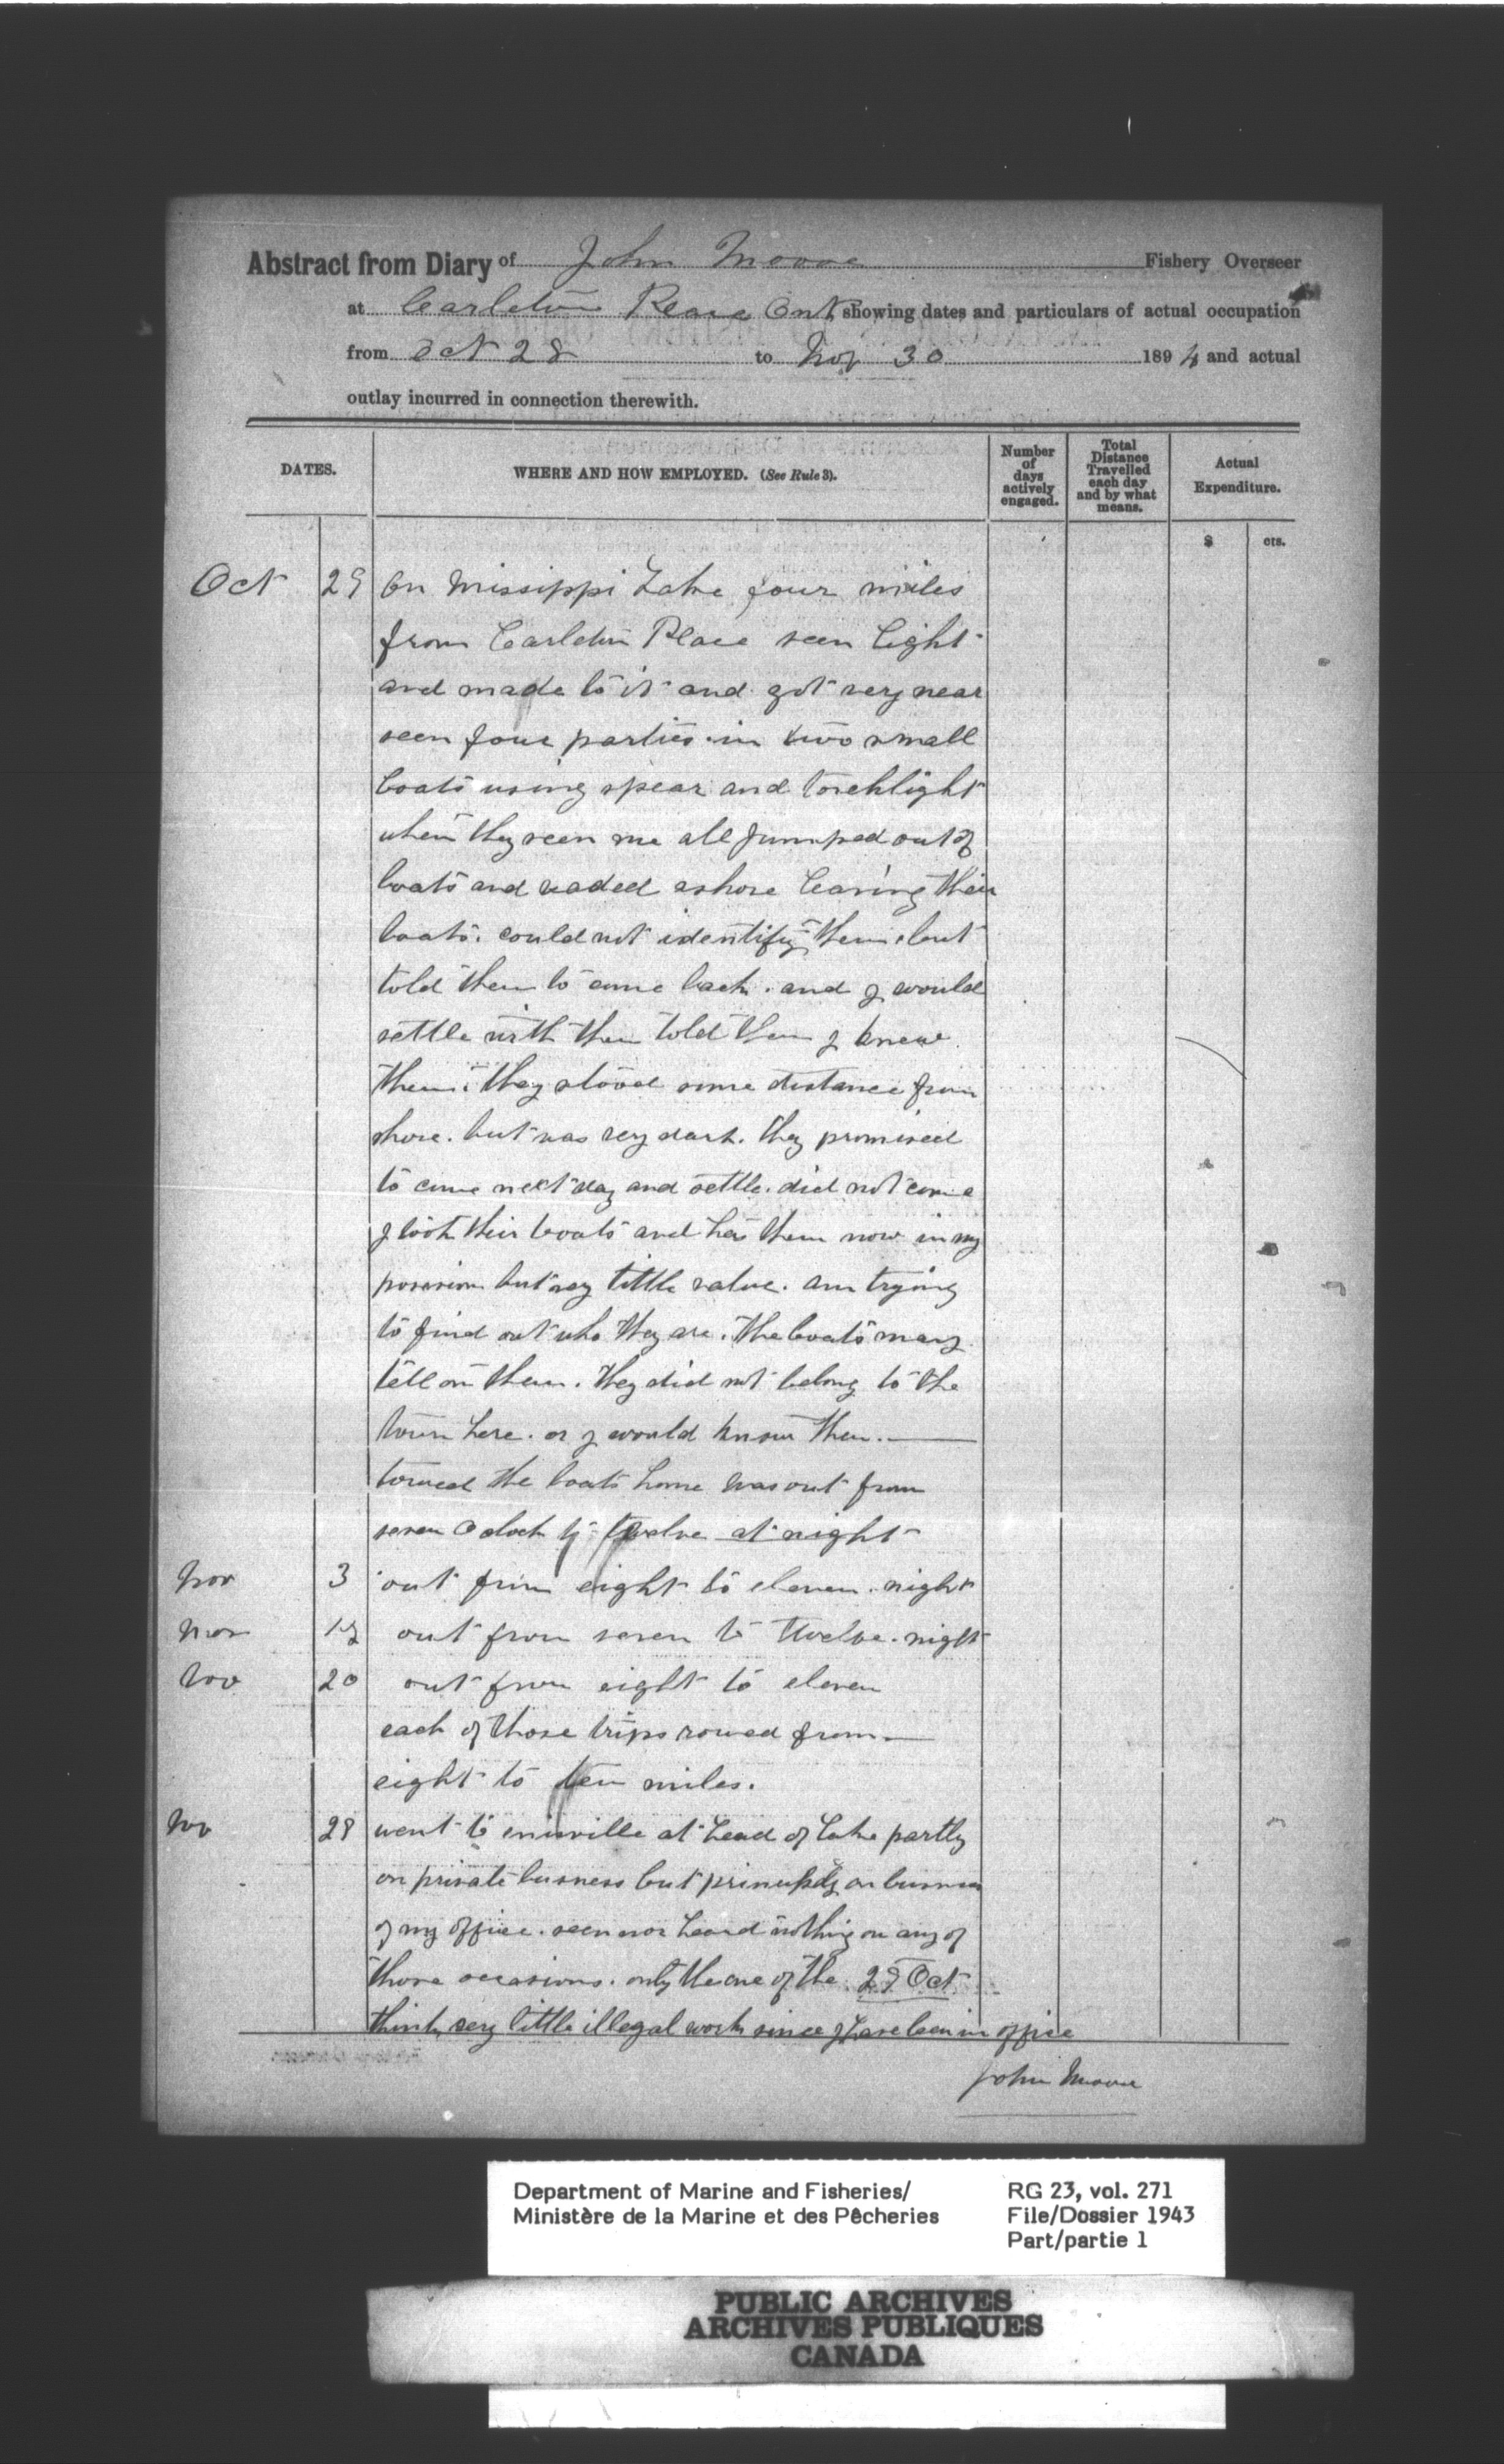 Abstract from Diary of John Moore Fishery Overseer
at Carleton Place Ont showing dates and particulars of actual occupation
from Oct 28 to Nov 30 1894 and actual
outlay incurred in connection therewith.
DATES. WHERE AND HOW EMPLOYED. (See Rule 3). Number of days actively engaged. Total Distance Travelled each day and by what means. Actual Expenditure.
$ cts.
Oct 29 On Missippi Lake four miles
from Carleton Place seen light
and made to it and got very near
seen four parties in two small
boats using spear and torchlight
when they seen me all jumped out of
boats and waded ashore leaving their
boats. could not identify them but
told them to come back. and I would
settle with them told them I knew
them. they stood some distance from
shore. but was very dark. they promised
to come next day and settle. did not come
I took their boats and has them now in my
possesion but very little value. am trying
to find out who they are. the boats may
tell on them. they did not belong to the
town here. or I would know them.
towed the boats home was out from
seven Oclock to twelve at night
Nov 3 out from eight to eleven. night
Nov out from seven to twelve. night
Nov 20 out from eight to eleven
each of those trips rowed from
eight to ten miles.
Nov 28 went to inisville at head of lake partly
on private busness but on
of my office. seen nor heard nothing on any of
those occasions. only the one of the 29 Oct
think very little illegal work since I have been in office
John Moore
Department of Marine and Fisheries/ RG 23, vol. 271
Ministère de la Marine et des Pêcheries File/Dossier 1943
Part/partie 1
PUBLIC ARCHIVES
ARCHIVES PUBLIQUES
CANADA